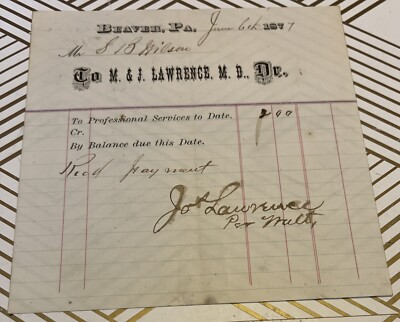 Beaver, Pa. June 6th 1877
Mr S B Wilson
To M. & J. LAWRENCE, M. D., Dr.,
To Professional Services to Date. 2 00
Cr.
By Balance due this Date.
Recd payment
Jos Lawrence
Per